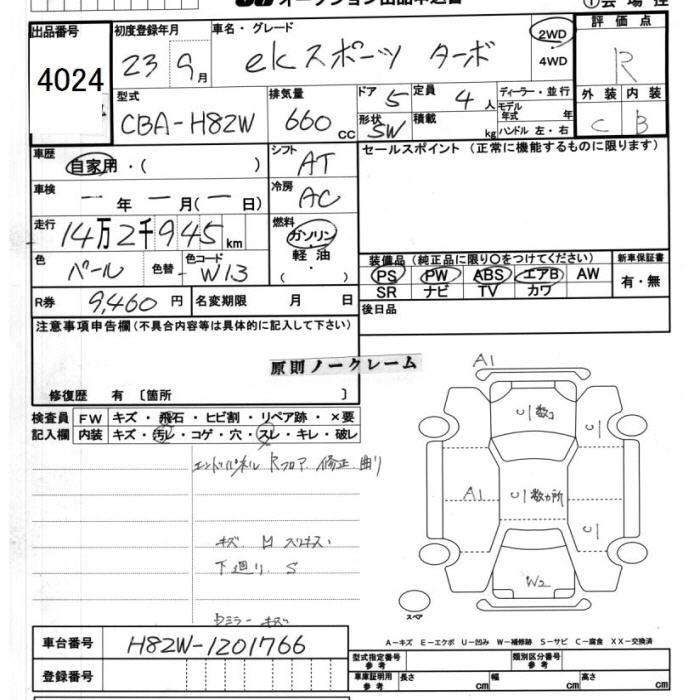 オークション出品申込書
①会場控
出品番号 4024
初度登録年月 23 9月
車名・グレード ekスポーツ ターボ
2WD
・
4WD
評価点 R
型式 CBA-H82W
排気量 660 cc
ドア 5
定員 4人
形状 SW
積載 kg
ディーラー・並行
モデル年式 年
ハンドル 左・右
外装 C
内装 B
車歴 自家用・( )
シフト AT
セールスポイント(正常に機能するものに限ります)
車検 ー年 ー月(ー日)
冷房 AC
走行 14万2千945km
燃料 ガソリン・軽油・( )
色 パール 色替 色コード W13
装備品(純正品に限り○をつけてください)
新車保証書
PS PW ABS エアB AW
有・無
SR ナビ TV カワ
R券 9,460円 名変期限 月 日
後日品
注意事項申告欄(不具合内容等は具体的に記入して下さい)
原則ノークレーム
修復歴 有 〔箇所 〕
検査員 FW キズ・飛石・ヒビ割・リペア跡・×要
記入欄 内装 キズ・汚レ・コゲ・穴・スレ・キレ・破レ
エンドパネル Rフロア 修正 曲り
下廻り S
Rミラー キズ
A1
A1
W2
スペア
車台番号 H82W-1201766
登録番号
A-キズ E-エクボ U-凹み W-補修跡 S-サビ C-腐食 XX-交換済
型式指定番号 参考
類別区分番号 参考
車庫証明用 参考 長さ cm 幅 cm 高さ cm